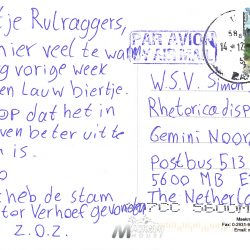 tje Rulraggers,
hier veel te wa
g vorige week
en Lauw biertje.
OP dat het in
ven beter uit te
n is.
O
heb de stam
tor Verhoef gevonden
Z.O.Z.
PAR AVION
BY AIR MAIL
W.S.V. Simon
Rhetoricadisp
Gemini Noor
Postbus 513
5600 MB E
The Netherl